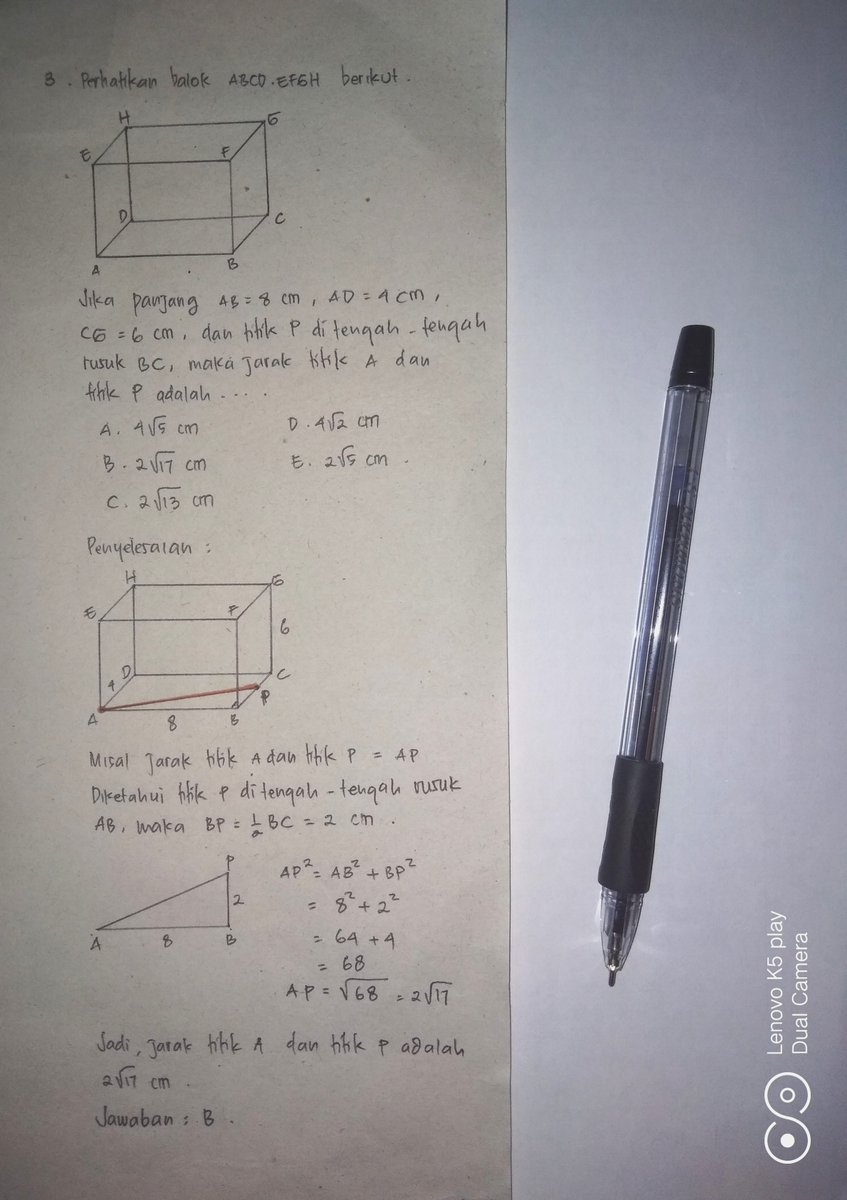 3. Perhatikan balok ABCD.EFGH berikut.
H
G
E
F
D
C
A
B
Jika panjang AB = 8 cm, AD = 4 cm,
CG = 6 cm, dan titik P di tengah-tengah
rusuk BC, maka jarak titik A dan
titik P adalah ....
A. 4√5 cm
D. 4√2 cm
B. 2√17 cm
E. 2√5 cm.
C. 2√13 cm
Penyelesaian :
H
G
E
F
6
D
C
4
P
A
8
B
Misal jarak titik A dan titik P = AP
Diketahui titik P di tengah-tengah rusuk
AB, maka BP = 1/2 BC = 2 cm.
P
2
A
8
B
AP² = AB² + BP²
= 8² + 2²
= 64 + 4
= 68
AP = √68 = 2√17
Jadi, jarak titik A dan titik P adalah
2√17 cm.
Jawaban : B.
Lenovo K5 play
Dual Camera